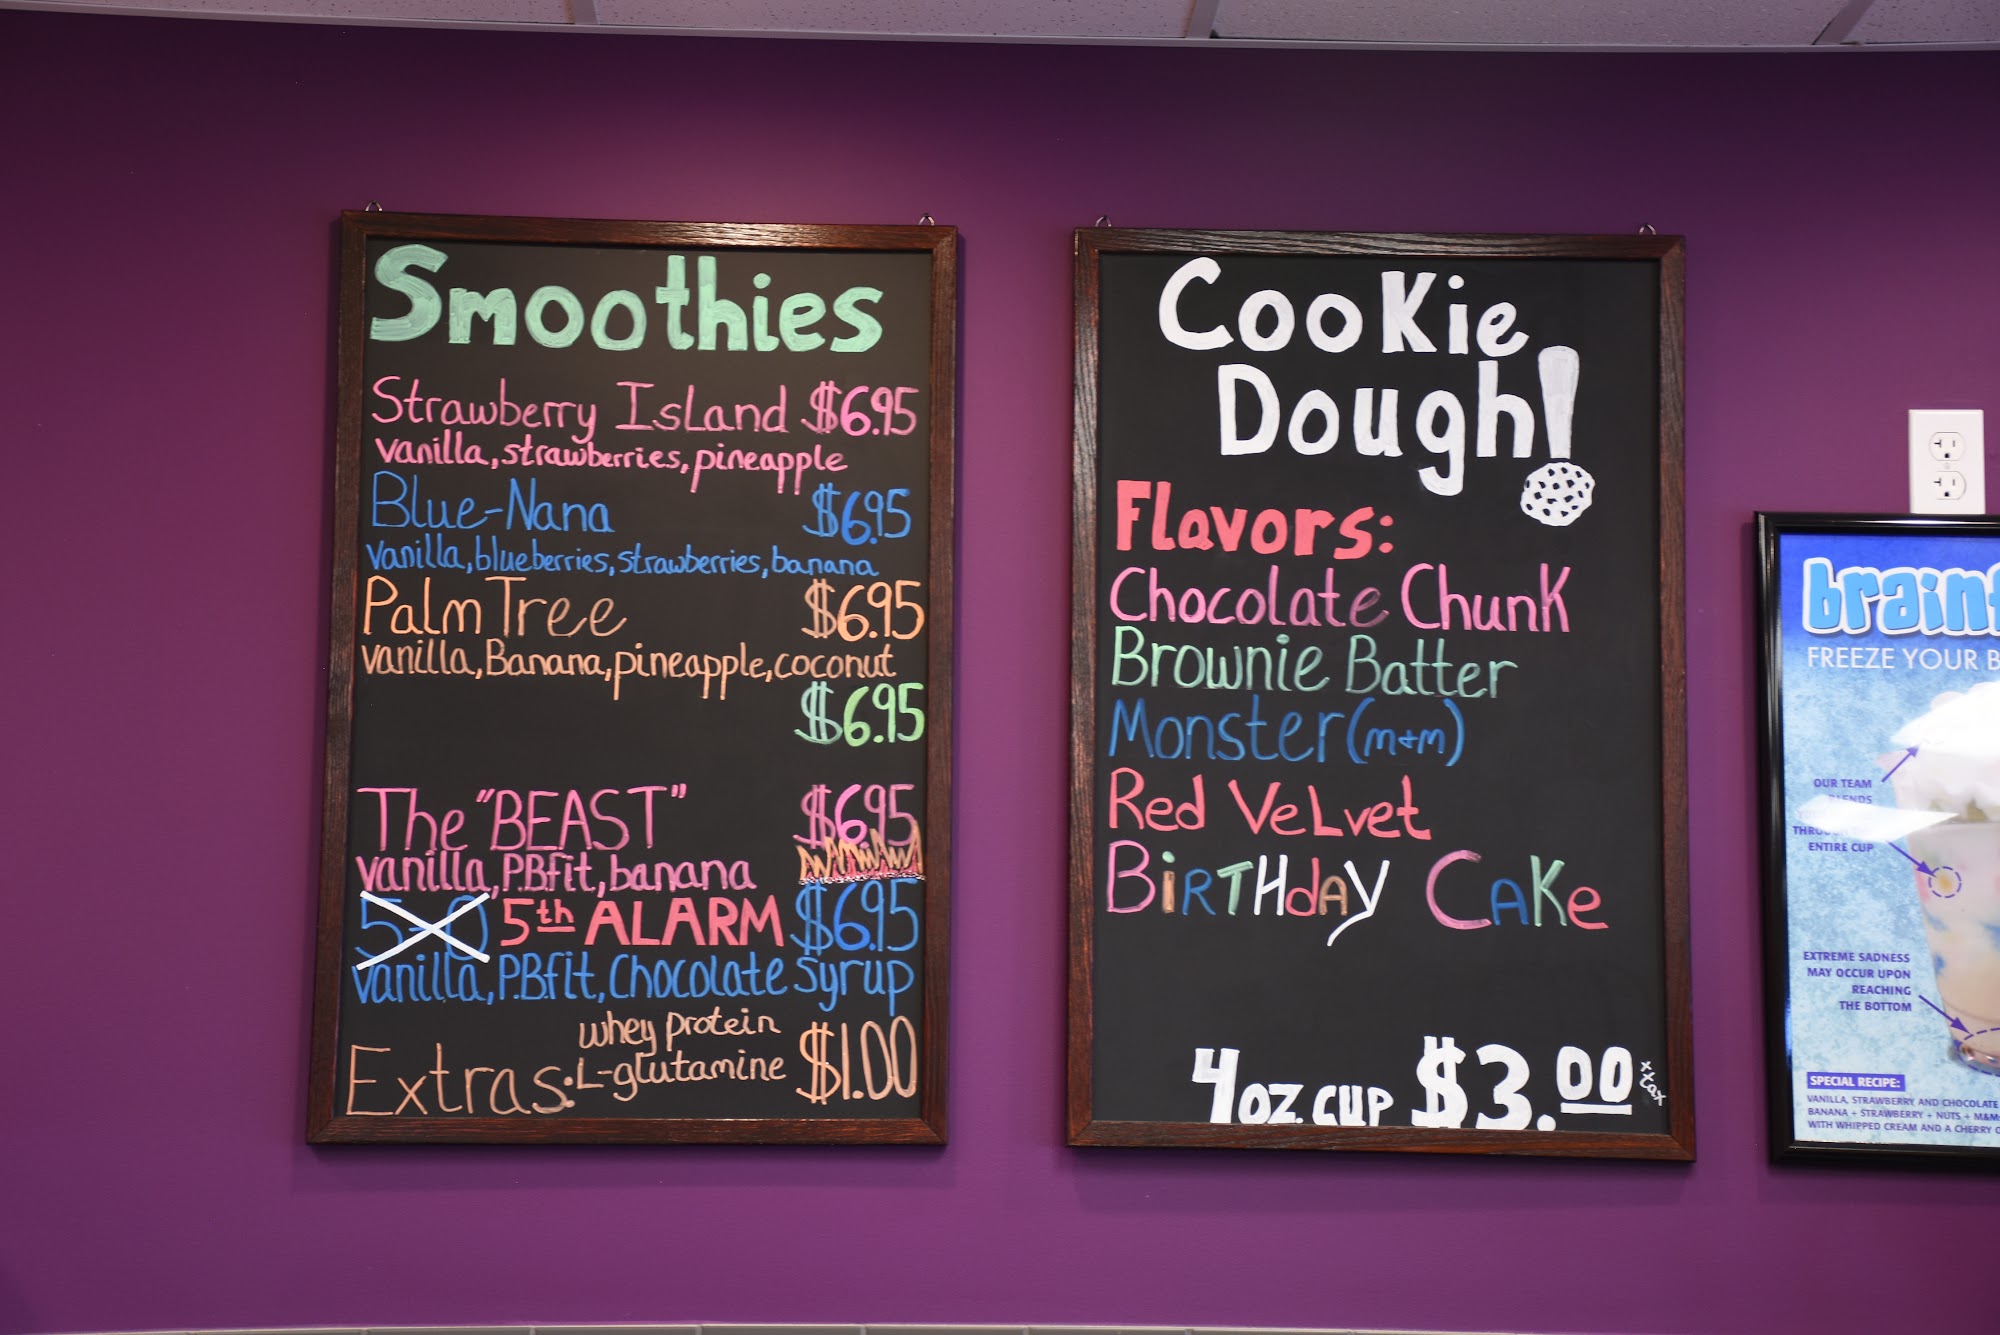 Smoothies
Strawberry Island $6.95
vanilla, strawberries, pineapple
Blue-Nana $6.95
vanilla, blueberries, strawberries, banana
Palm Tree $6.95
vanilla, Banana, pineapple, coconut
$6.95
The "BEAST" $6.95
vanilla, P.B.fit, banana
5-0 5th ALARM $6.95
vanilla, P.B.fit, Chocolate Syrup
Extras: whey protein
L-glutamine $1.00
Cookie
Dough!
Flavors:
Chocolate Chunk
Brownie Batter
Monster (m+m)
Red Velvet
BirTHdAy CAKe
4oz. cup $3.00
brainf
FREEZE YOUR B
OUR TEAM
BLENDS
THROU
ENTIRE CUP
EXTREME SADNESS
MAY OCCUR UPON
REACHING
THE BOTTOM
SPECIAL RECIPE:
VANILLA, STRAWBERRY AND CHOCOLATE
BANANA + STRAWBERRY + NUTS + M&M
WITH WHIPPED CREAM AND A CHERRY